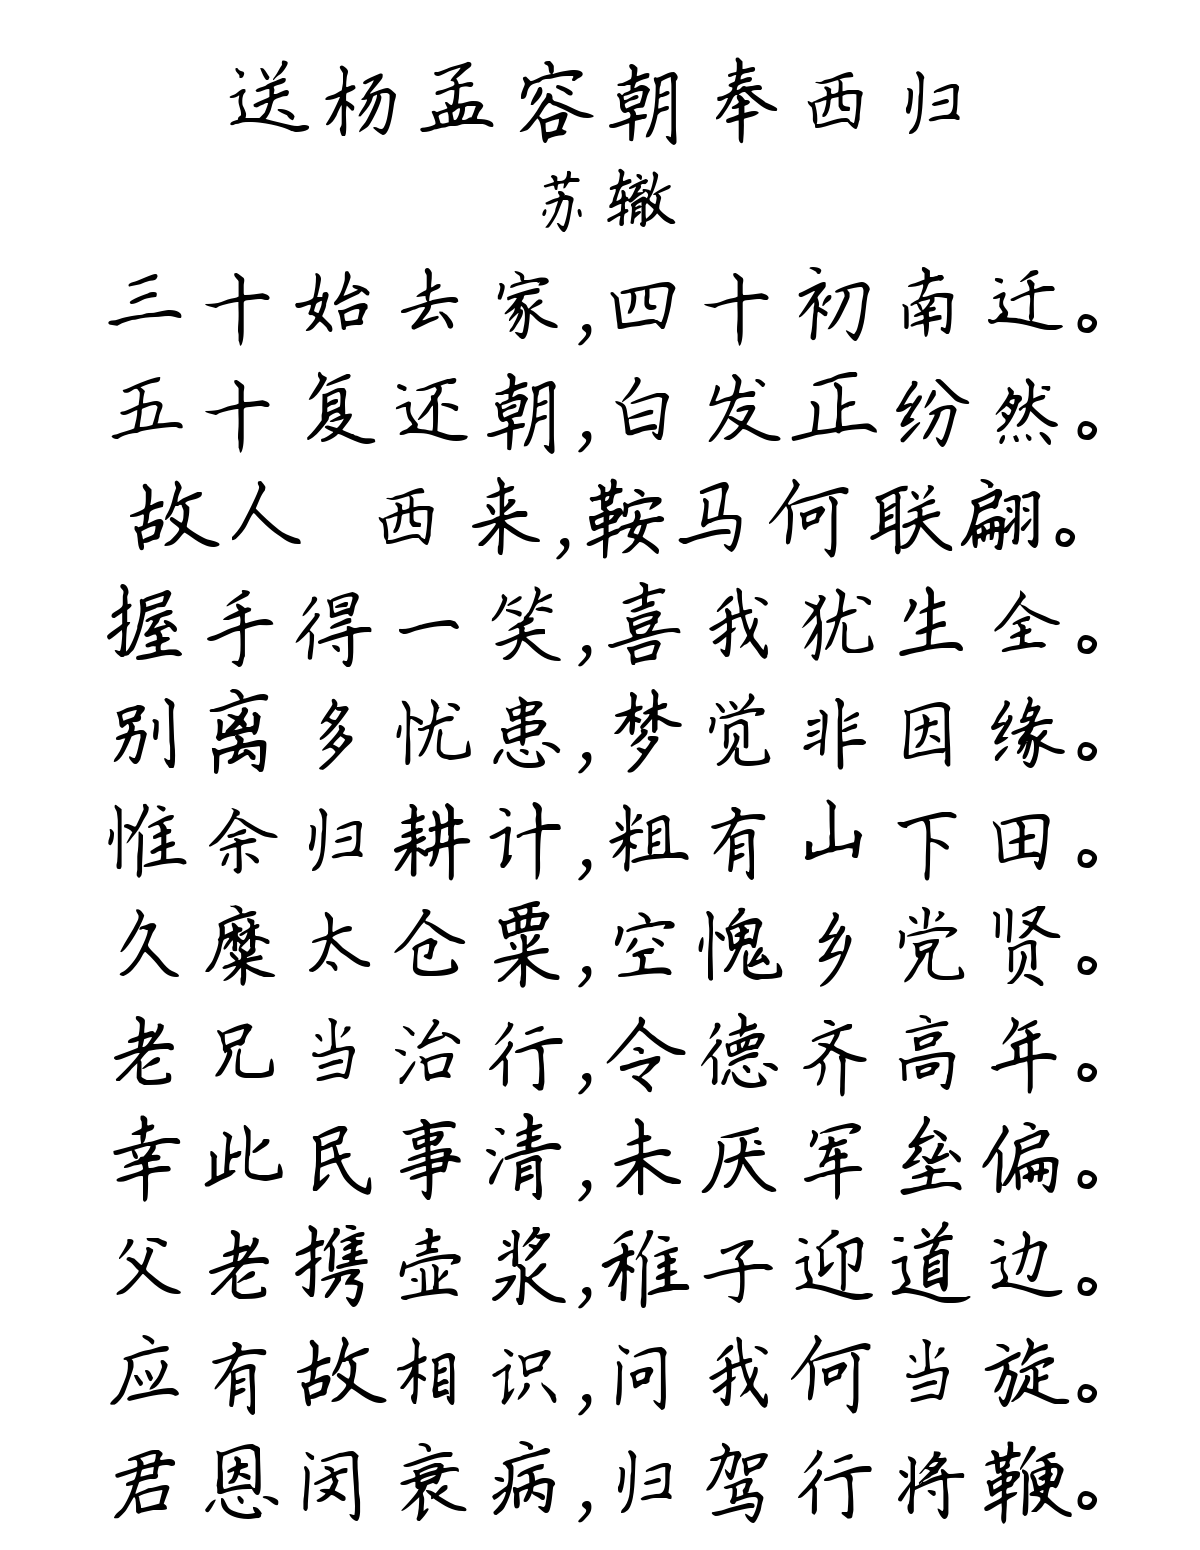 送杨孟容朝奉西归
苏辙
三十始去家,四十初南迁。
五十复还朝,白发正纷然。
故人 西来,鞍马何联翩。
握手得一笑,喜我犹生全。
别离多忧患,梦觉非因缘。
惟余归耕计,粗有山下田。
久糜太仓粟,空愧乡党贤。
老兄当治行,令德齐高年。
幸此民事清,未厌军垒偏。
父老携壶浆,稚子迎道边。
应有故相识,问我何当旋。
君恩闵衰病,归驾行将鞭。